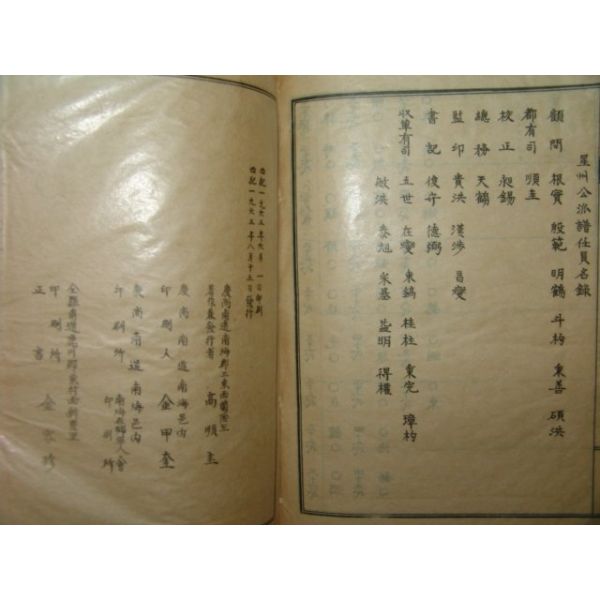 星州公派譜任員名錄
顧問 根實 殷範 明鶴 斗杓 東善 碩洪
都有司 順圭
校正 昶錫
總務 天鶴
監印 貴洪 漢渉 昌燮
書記 俊守 德弼
收單有司 五世 在燮 東鎬 桂柱 東完 璋杓
敏洪 泰旭 采基 益明 得權
西紀一九六五年六月 一日印刷
西紀一九六五年八月十五日發行
慶尚南道南海郡二東面蘭陰里
著作兼發行者 高順圭
慶尚南道南海邑内
印刷人 金甲奎
慶尚南道南海邑内
印刷所 南海在鄕軍人會
印刷所
印刷所
正書 金